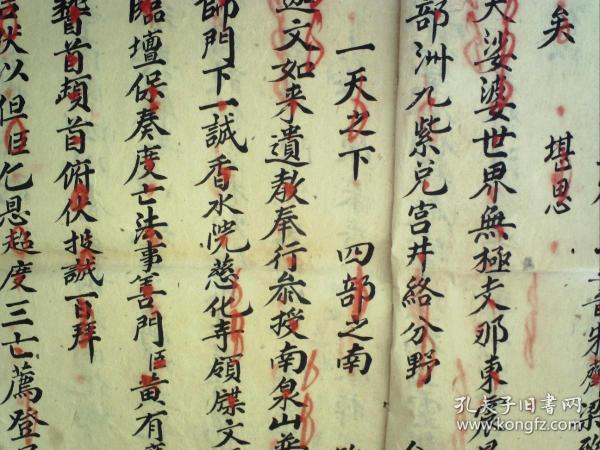 矣　堪思
天娑婆世界無極支那東震旦
部洲九紫兌宮井絡分野
一天之下　四部之南
文如来遺教奉行叅授南泉山普
師門下一誠香水院慈化寺領牒文
臨壇保奏度亡法事善門臣黄有
暫首頓首俯伏投誠百拜
伏以但臣乞恩超度三亡薦登
孔夫子旧书网
www.kongfz.com